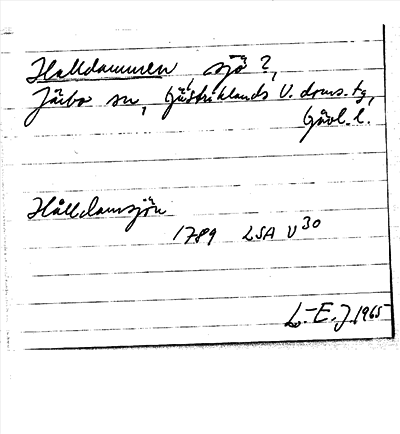 Halldammen, sjö ?,
Järbo sn, Gästriklands V. doms. tg,
Gävl. l.
Hålldamsjön
1789 LSA V 30
L.-E. J. 1965